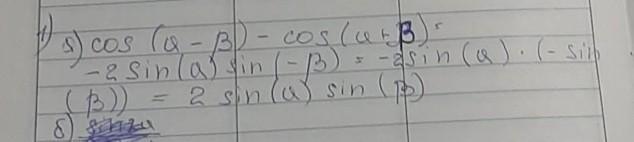 1) б) cos (α - β) - cos (α + β) =
-2 sin(α) sin (-β) = -2 sin (α) · (- sin
(β)) = 2 sin (α) sin (β)
б)